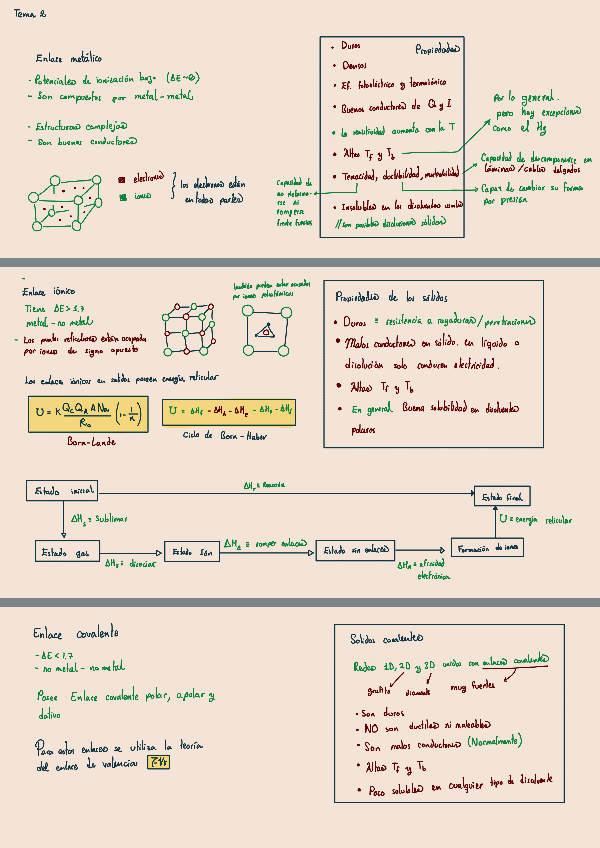 Tema 2
Enlace metálico
- Potenciales de ionización bajo (ΔE~0)
- Son compuestos por metal-metal
- Estructuras complejas
- Son buenos conductores
electrones
iones
los electrones están
en todas partes
Propiedades
• Duros
• Densos
• Ef. fotoeléctrico y termoiónico
• Buenos conductores de Q y I
• La resistividad aumenta con la T
• Altas Tf y Tb
• Tenacidad, ductibilidad, maleabilidad
• Insolubles en los disolventes usuales
// Son posibles disoluciones sólidas
Por lo general.
pero hay excepciones
como el Hg
Capacidad de descomponerse en
láminas / cables delgados
Capaz de cambiar su forma
por presión
Capacidad de
no deformarse
ni
romperse
frente fuerzas
Enlace iónico
Tiene ΔE > 1,7
metal - no metal
- Los puntos reticulares están ocupados
por iones de signo opuesto
también pueden estar ocupados
por iones poliatómicos
Los enlaces iónicos en solidos poseen energía reticular
U = K QcQaANav/Ro (1-1/n)
Born-Lande
U = ΔHf - ΔHA - ΔHe - ΔHs - ΔHI
Ciclo de Born-Haber
Propiedades de los sólidos
• Duros = resistencia a rayaduras/penetraciones
• Malos conductores en sólido, en líquido o
disolución solo conducen electricidad.
• Altas Tf y Tb
• En general Buena solubilidad en disolventes
polares
Estado inicial
ΔHf = Reacción
Estado final
ΔHs = Sublimar
U = energía reticular
Estado gas
ΔHI = disociar
Estado Ión
ΔHe = romper enlaces
Estado sin enlaces
ΔHA = afinidad
electrónica
Formación de iones
Enlace covalente
- ΔE < 1,7
- no metal - no metal
Posee Enlace covalente polar, apolar y
dativo
Para estos enlaces se utiliza la teoría
del enlace de valencias
Solidos covalentes
Redes 1D, 2D y 3D unidas con enlaces covalentes
grafito
diamante
muy fuertes
• Son duros
• NO son ductiles ni maleables
• Son malos conductores (Normalmente)
• Altas Tf y Tb
• Poco solubles en cualquier tipo de disolvente